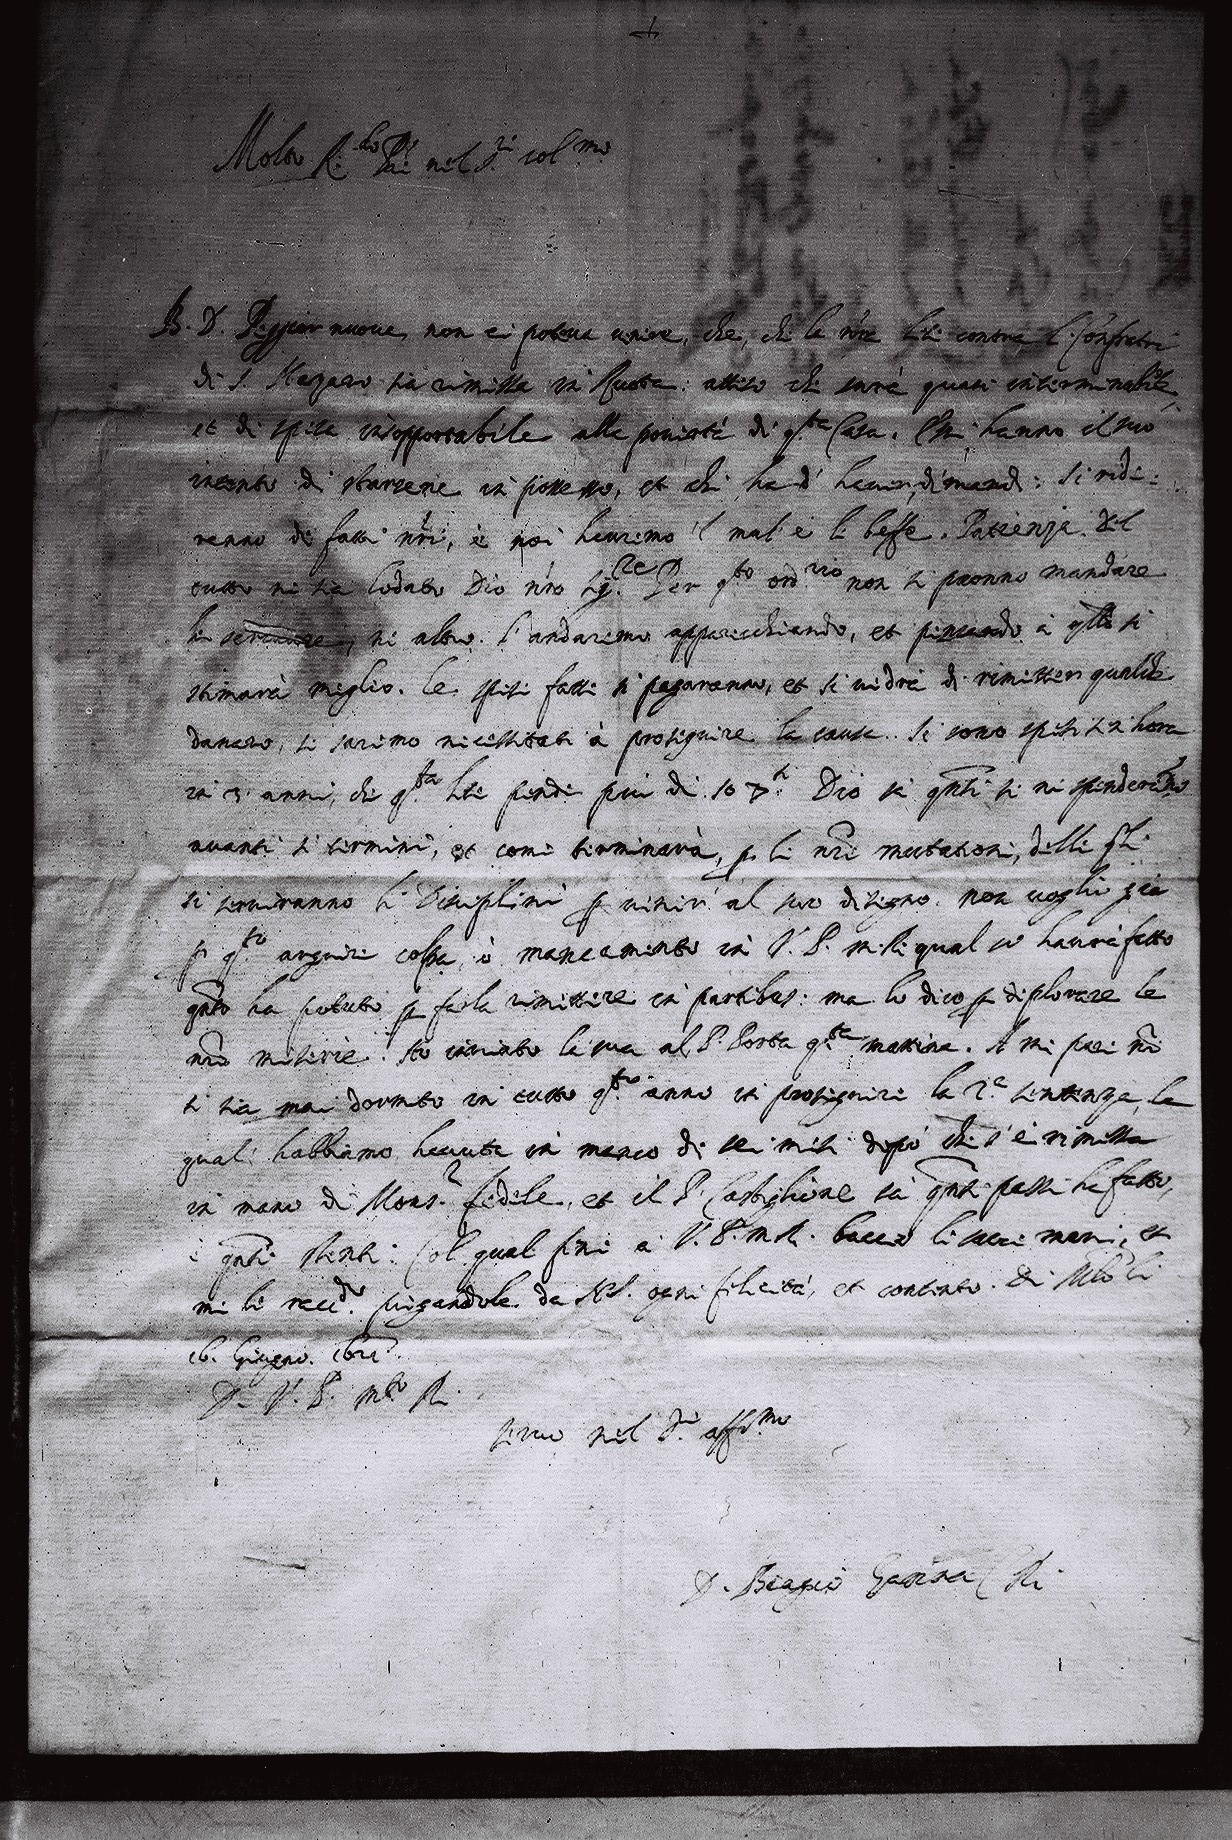 Molto R.do P.re nel S.r col.mo
B. D. Peggior nuova, non ci poteva venire, che, che la n'ra lite contra li Confratri
di S. Nazaro sia rimissa in Ruota: atteso che sarà quasi interminabile,
et di spesa insopportabile alla povertà di q.ta Casa. Essi hanno il suo
intento di starsene in possesso, et chi ha d' haver, dimandi: si ride-
ranno di fatti n'ri, e noi haveremo 'l mal e le beffe. Patienza. Del
tutto ne sia lodato Dio n'ro Sig.re Per q.to ord.rio non si ponno mandare
le , ne altro. S'andaremo apparecchiando, et pensando a q'llo si
stimarà miglio. Le spese fatte si pagaranno, et si vedrà di rimetter qualche
danaro, se saremo necessitati à proseguire la causa. Si sono spesi sin hora
in 3 anni, che q.ta lite pende più di 50 Dio sa q'nti se ne spenderanno
avanti si termini, et come terminarà, p. le n're mutationi, delle q'li
si serviranno li Disciplini p venir al suo disegno. non voglio già
p q.to arguire colpa, ò mancamento in V. P. m. R. qual so haverà fatto
q'nto ha potuto p farla rimettere in partibus: ma lo dico p deplorare le
n're miserie. Ho inviato la sua al P. Porta q.ta mattina. A me pare n'n
si sia mai dormito in tutto q.to anno in proseguire la 2.a sentenza, la
quale habbiamo havuta in manco di sei mesi dopò che s'è rimissa
in mano di Mons.r Fedele, et il P. Castiglione sa q'nti passi ha fatto,
è q'nti stenti: Col qual fine a V. P. m. R. baccio le sacre mani, et
me le racc.do pregandole da N. S. ogni felicità, et contento. Di
16. Giugno.
D. V. P. m.to R.
servo nel S.re aff.mo
D. Biagio